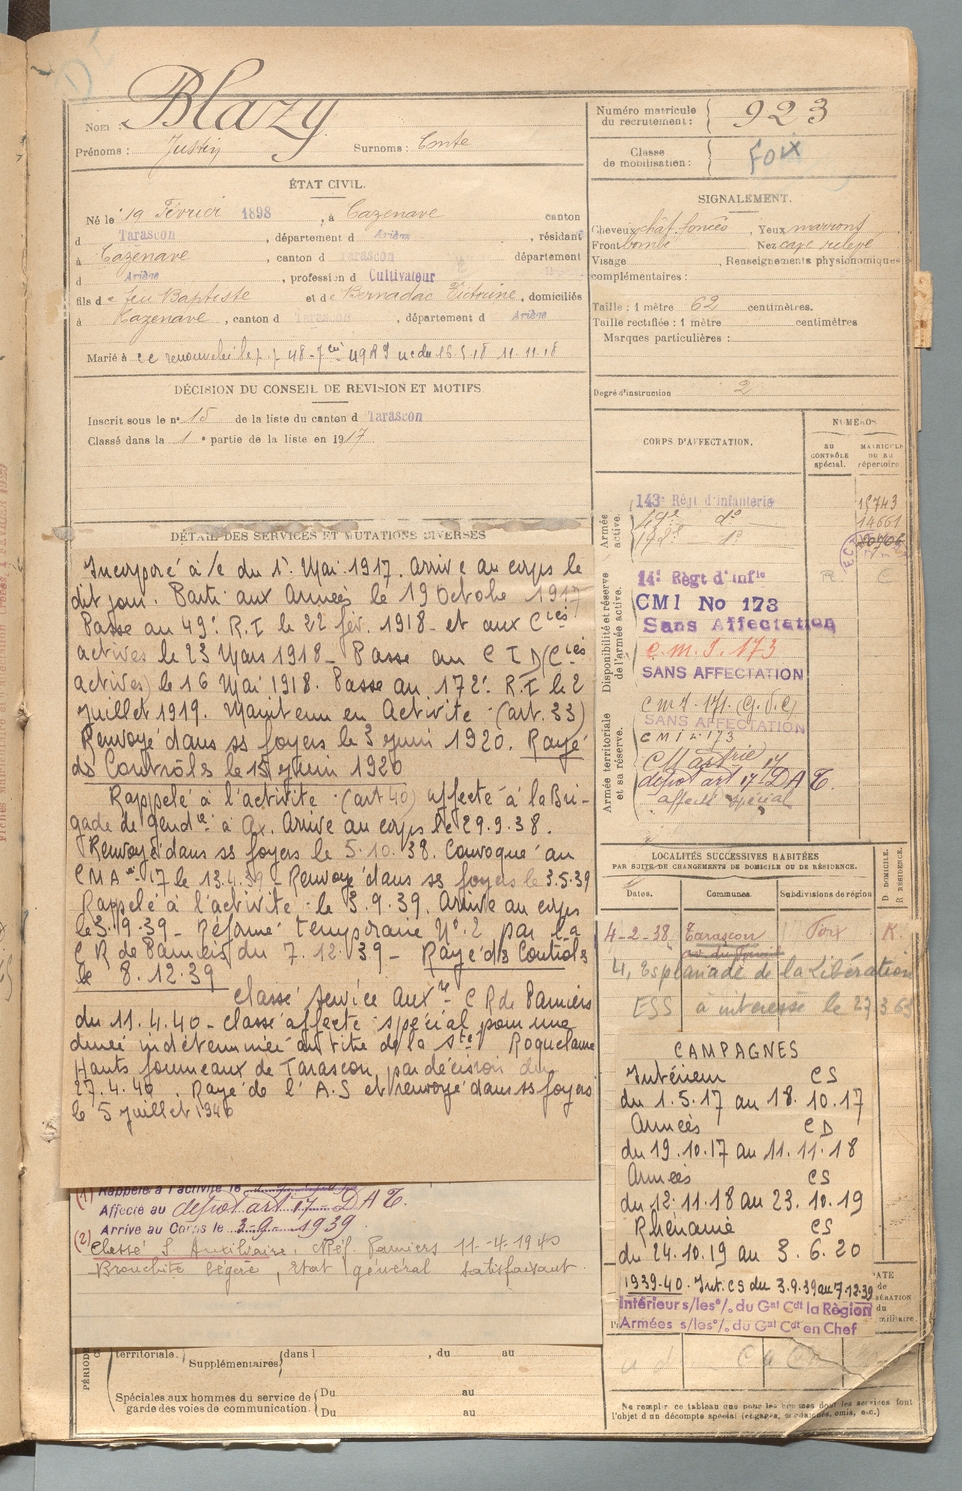 Nom : Blazy
Prénoms : Justin Surnoms : Conte
Numéro matricule du recrutement : 923
Classe de mobilisation : Foix
ÉTAT CIVIL.
Né le 19 Février 1898, à Cazenave canton
d Tarascon, département d Ariège, résidant
à Cazenave, canton d Tarascon département
d Ariège, profession d Cultivateur
fils de feu Baptiste et de Bernadac Victorine, domiciliés
à Cazenave, canton d Tarascon, département d Ariège
Marié à
DÉCISION DU CONSEIL DE REVISION ET MOTIFS.
Inscrit sous le n° 15 de la liste du canton d Tarascon
Classé dans la 1e partie de la liste en 1917
SIGNALEMENT.
Cheveux chât. foncés, Yeux marrons
Front bombé, Nez cave relevé
Visage, Renseignements physionomiques
complémentaires :
Taille : 1 mètre 62 centimètres.
Taille rectifiée : 1 mètre centimètres
Marques particulières :
Degré d'instruction 2
CORPS D'AFFECTATION.
NUMÉROS
AU CONTRÔLE spécial.
MATRICULE OU AU répertoire.
Armée active.
143e Régt d'infanterie 15743
49e do 14661
Disponibilité et réserve de l'armée active.
14e Régt d'Infie
CMI No 173
Sans Affectation
C.M.I. 173
SANS AFFECTATION
Armée territoriale et sa réserve.
SANS AFFECTATION
CMI n° 173
dépot art 17 D A T.
affecté spécial
DÉTAIL DES SERVICES ET MUTATIONS DIVERSES
Incorporé à /c du 1er Mai 1917. Arrivé au corps le
dit jour. Parti aux Armées le 19 Octobre 1917
Passé au 49e R.I le 22 fév. 1918 - et aux Cies
actives le 23 Mars 1918 - Passé au C I D (Cies
actives) le 16 Mai 1918. Passé au 172e R.I le 2
Juillet 1919. Maintenu en Activité (art. 33)
Renvoyé dans ss foyers le 3 juin 1920. Rayé
ds Contrôls le 15 juin 1920
Rappelé à l'activité (art 40) affecté à la Bri-
gade de Gendie à Ax. Arrivé au corps le 29.9.38.
Renvoyé dans ss foyers le 5.10.38. Convoqué au
CMA 17 le 13.4.39 - Renvoyé dans ss foyers le 3.5.39
Rappelé à l'activité le 3.9.39. Arrivé au corps
le 3.9.39 - Réformé temporaire N° 2 par la
C R de Pamiers du 7.12.39 - Rayé ds Contrôls
le 8.12.39
Classé service Auxre C R de Pamiers
du 11.4.40 - Classé affecté spécial pour une
durée indéterminée au titre de la Sté Roquelaure
Hauts fourneaux de Tarascon, par décision du
27.4.40. Rayé de l'A.S et renvoyé dans ss foyers
le 5 juillet 1940
(1) Rappelé à l'activité le
Affecté au dépot art 17 D A T.
Arrivé au Corps le 3-9-1939.
(2) Classé S. Auxiliaire, Réf. Pamiers 11-4-1940
Bronchite légère, Etat général satisfaisant.
LOCALITÉS SUCCESSIVES HABITÉES
PAR SUITE DE CHANGEMENTS DE DOMICILE OU DE RÉSIDENCE.
Dates. Communes. Subdivisions de région D. DOMICILE. R. RÉSIDENCE.
4-2-38 Tarascon Foix R.
4, Esplanade de la Libération
ESS à intéressé le 27.3.63
CAMPAGNES
Intérieur CS
du 1.5.17 au 18.10.17
Armées CD
du 19.10.17 au 11.11.18
Armées CS
du 12.11.18 au 23.10.19
Rhénanie CS
du 24.10.19 au 3.6.20
1939-40. Int. CS du 3.9.39 au 7.12.39
Intérieur s/les o/. du Gal Cdt la Région
Armées s/les o/. du Gal Cdt en Chef
territoriale. Supplémentaires dans l, du au
Spéciales aux hommes du service de garde des voies de communication. Du au
Du au
Ne remplir ce tableau que pour les hommes dont les services font
l'objet d'un décompte spécial (engagés, omis, etc.)